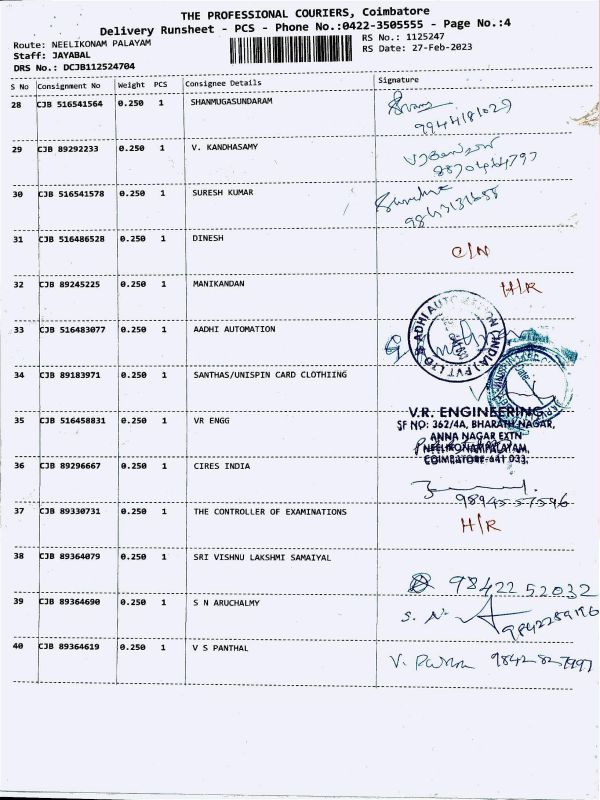 THE PROFESSIONAL COURIERS, Coimbatore
Delivery Runsheet - PCS - Phone No.:0422-3505555 - Page No.:4
Route: NEELIKONAM PALAYAM
RS No.: 1125247
Staff: JAYABAL
RS Date: 27-Feb-2023
DRS No.: DCJB112524704
S No Consignment No Weight PCS Consignee Details Signature
28 CJB 516541564 0.250 1 SHANMUGASUNDARAM
9944181029
29 CJB 89292233 0.250 1 V. KANDHASAMY
30 CJB 516541578 0.250 1 SURESH KUMAR
31 CJB 516486528 0.250 1 DINESH C/N
32 CJB 89245225 0.250 1 MANIKANDAN H/R
33 CJB 516483077 0.250 1 AADHI AUTOMATION
34 CJB 89183971 0.250 1 SANTHAS/UNISPIN CARD CLOTHIING
35 CJB 516458831 0.250 1 VR ENGG
V.R. ENGINEERING
SF NO: 362/4A, BHARATH NAGAR,
ANNA NAGAR EXTN
NEELIKONAMPALAYAM,
COIMBATORE-641 033.
36 CJB 89296667 0.250 1 CIRES INDIA
9894557596
37 CJB 89330731 0.250 1 THE CONTROLLER OF EXAMINATIONS H/R
38 CJB 89364079 0.250 1 SRI VISHNU LAKSHMI SAMAIYAL
98422 52032
39 CJB 89364690 0.250 1 S N ARUCHALMY S. N
40 CJB 89364619 0.250 1 V S PANTHAL V.